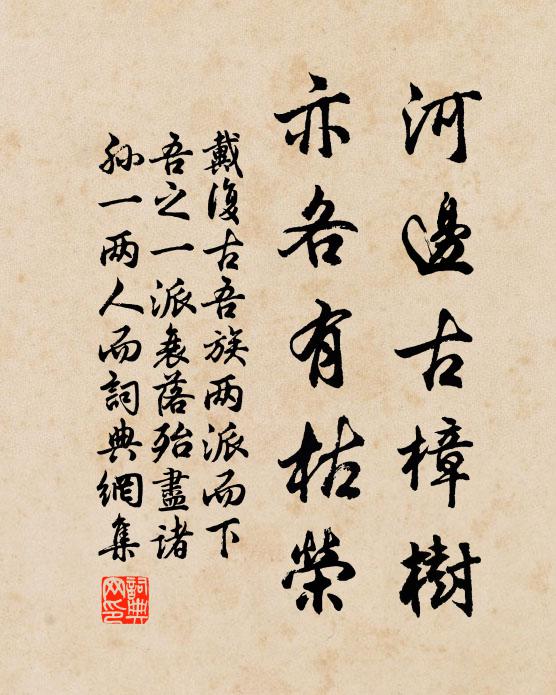 河邊古樟樹
亦各有枯榮
戴復古吾族两派而下
吾之一派衰落殆盡諸
孙一两人而詞典網集
詞典
网印